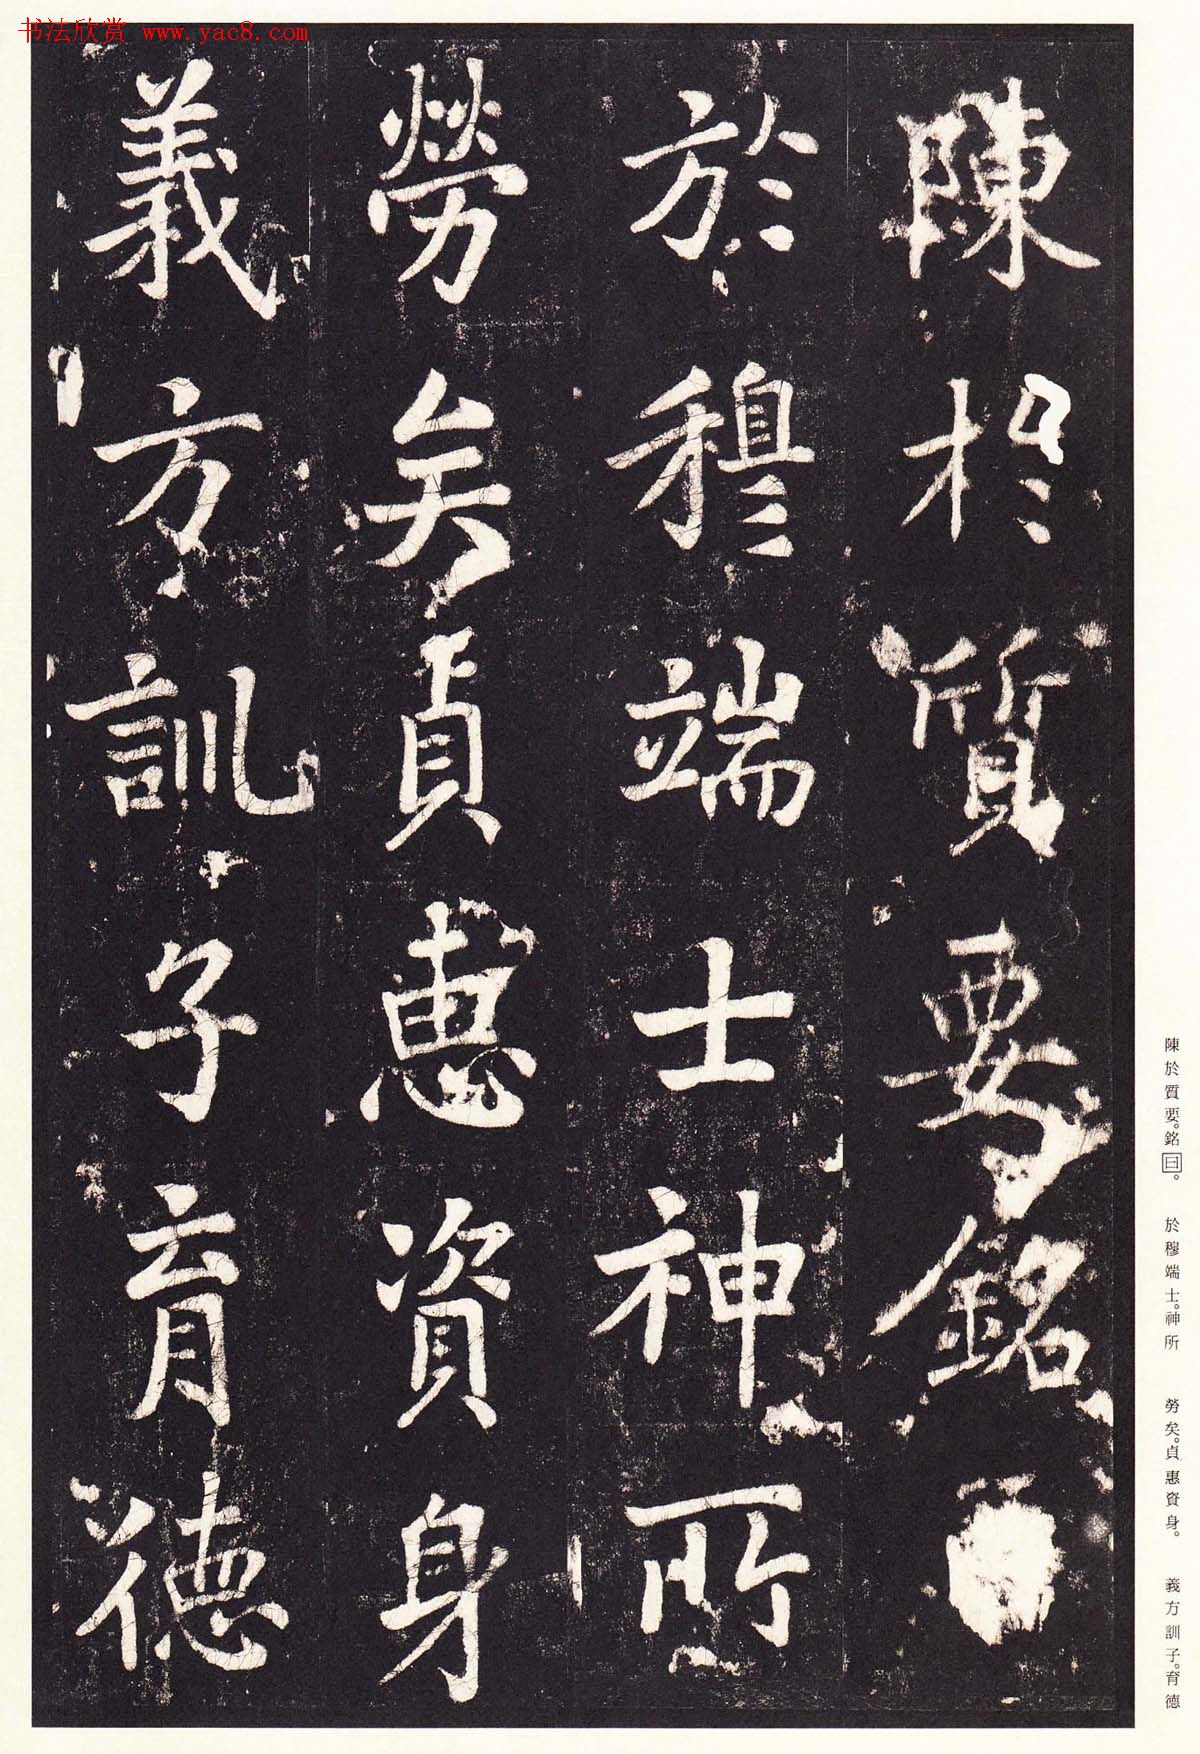 书法欣赏 www.yac8.com
陳於質要銘
於穆端士神所
勞矣貞惠資身
義方訓子育德
陳於質要。銘曰。 於穆端士。神所 勞矣。貞惠資身。 義方訓子。育德